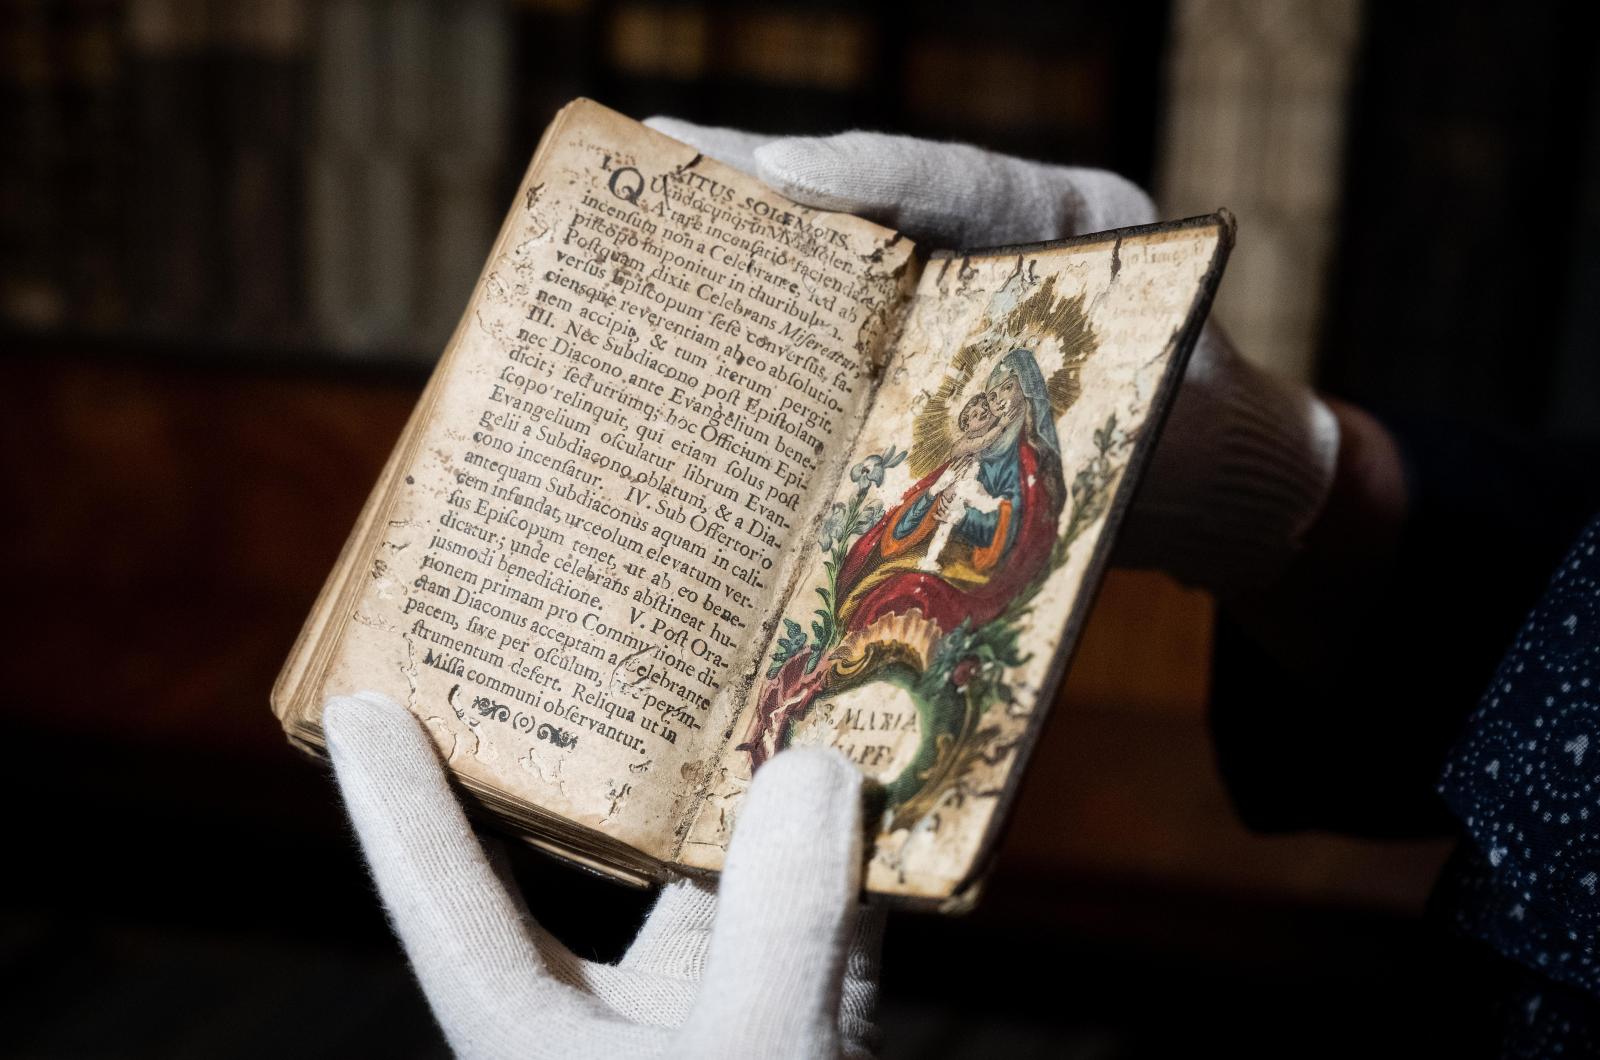 RITUS SOLEMNIS.
incensum non a Celebrante, sed ab
piscopo imponitur in thuribulum.
Postquam dixit Celebrans Misereatur
versus Episcopum sese conversus, fa-
ciensque reverentiam ab eo absolutio-
nem accipit, & tum iterum pergit.
III. Nec Subdiacono post Epistolam
nec Diacono ante Evangelium bene-
dicit; sed utrumq; hoc Officium Epi-
scopo relinquit, qui etiam solus post
Evangelium osculatur librum Evan-
gelii a Subdiacono oblatum, & a Dia-
cono incensatur. IV. Sub Offertorio
antequam Subdiaconus aquam in cali-
cem infundat, urceolum elevatum ver-
sus Episcopum tenet, ut ab eo bene-
dicatur; unde celebrans abstineat hu-
jusmodi benedictione. V. Post Ora-
tionem primam pro Communione di-
ctam Diaconus acceptam a Celebrante
pacem, sive per osculum, sive per in-
strumentum defert. Reliqua ut in
Missa communi observantur.
(o)
S. MARIA